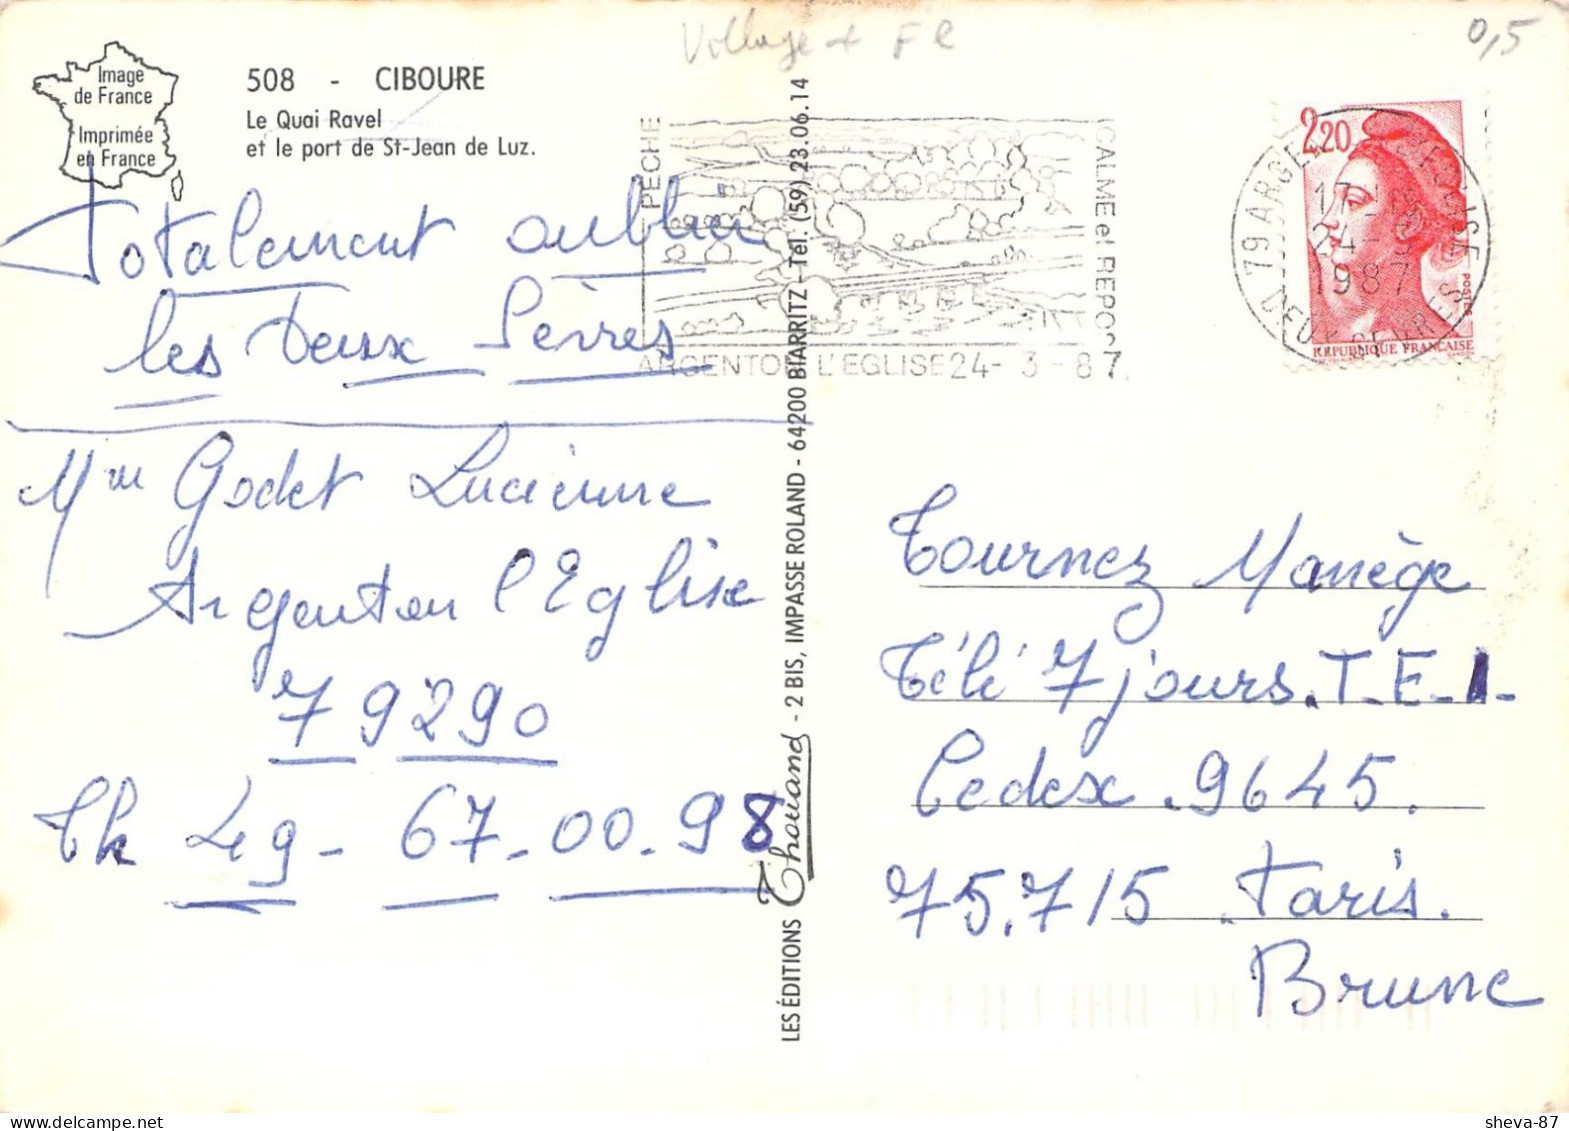 Village + FR
0,5
Image
de France
Imprimée
en France
508 - CIBOURE
Le Quai Ravel
et le port de St-Jean de Luz.
Totalement oublier
les Deux Sèvres
Mme Godet Lucienne
Argenton l'Eglise
79290
Th 49-67-00-98
LES ÉDITIONS Thouand - 2 BIS, IMPASSE ROLAND - 64200 BIARRITZ - Tél. (59) 23.06.14
PECHE
CALME et REPOS
ARGENTON L'EGLISE 24-3-87
2,20
79 ARGENTON L'EGLISE
17-
24-3
1987
DEUX SEVRES
POSTES
REPUBLIQUE FRANCAISE
Tournez Manège
Télé 7 jours.T-E-1-
Cedex.9645.
75.715 Paris.
Brune
sheva-87